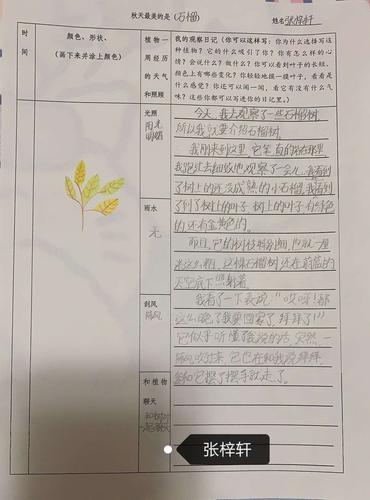 秋天最美的是(石榴)
姓名张梓轩
时间
颜色、形状、
(画下来并涂上颜色)
植物一周经历的天气和照顾
我的观察日记(你可以这样写:你为什么选择写这种植物?它的什么吸引了你?你有怎么样的心情?会说什么?做什么?你可以看到叶子的长短、颜色上有哪些变化?你轻轻地摸一摸叶子,看看是什么感觉?你还可以闻一闻,看它有没有什么气味?这些你都可以写进你的日记里。)
光照
阳光
明媚
雨水
无
刮风
和植物聊天
今天,我去观察了一些石榴树,
所以我就要介绍石榴树。
我刚来到这里,它笔直的站在那里,
我跑过去细致地观察了一会儿,我看到
了树上的还没成熟的小石榴,我看到
了树上的叶子,树上的叶子有绿色
的还有金黄色的。
而且,它的树枝特别细,也就一厘
米这么粗,这棵石榴树还在蔚蓝的
天空底下
我看了一下表说:“哎呀!都
这么晚了我要回家了,拜拜了!”
它似乎听懂了我说的话,突然,一
阵风吹过来,它也在和我说拜拜,
我和它摆了摆手就走了。
张梓轩